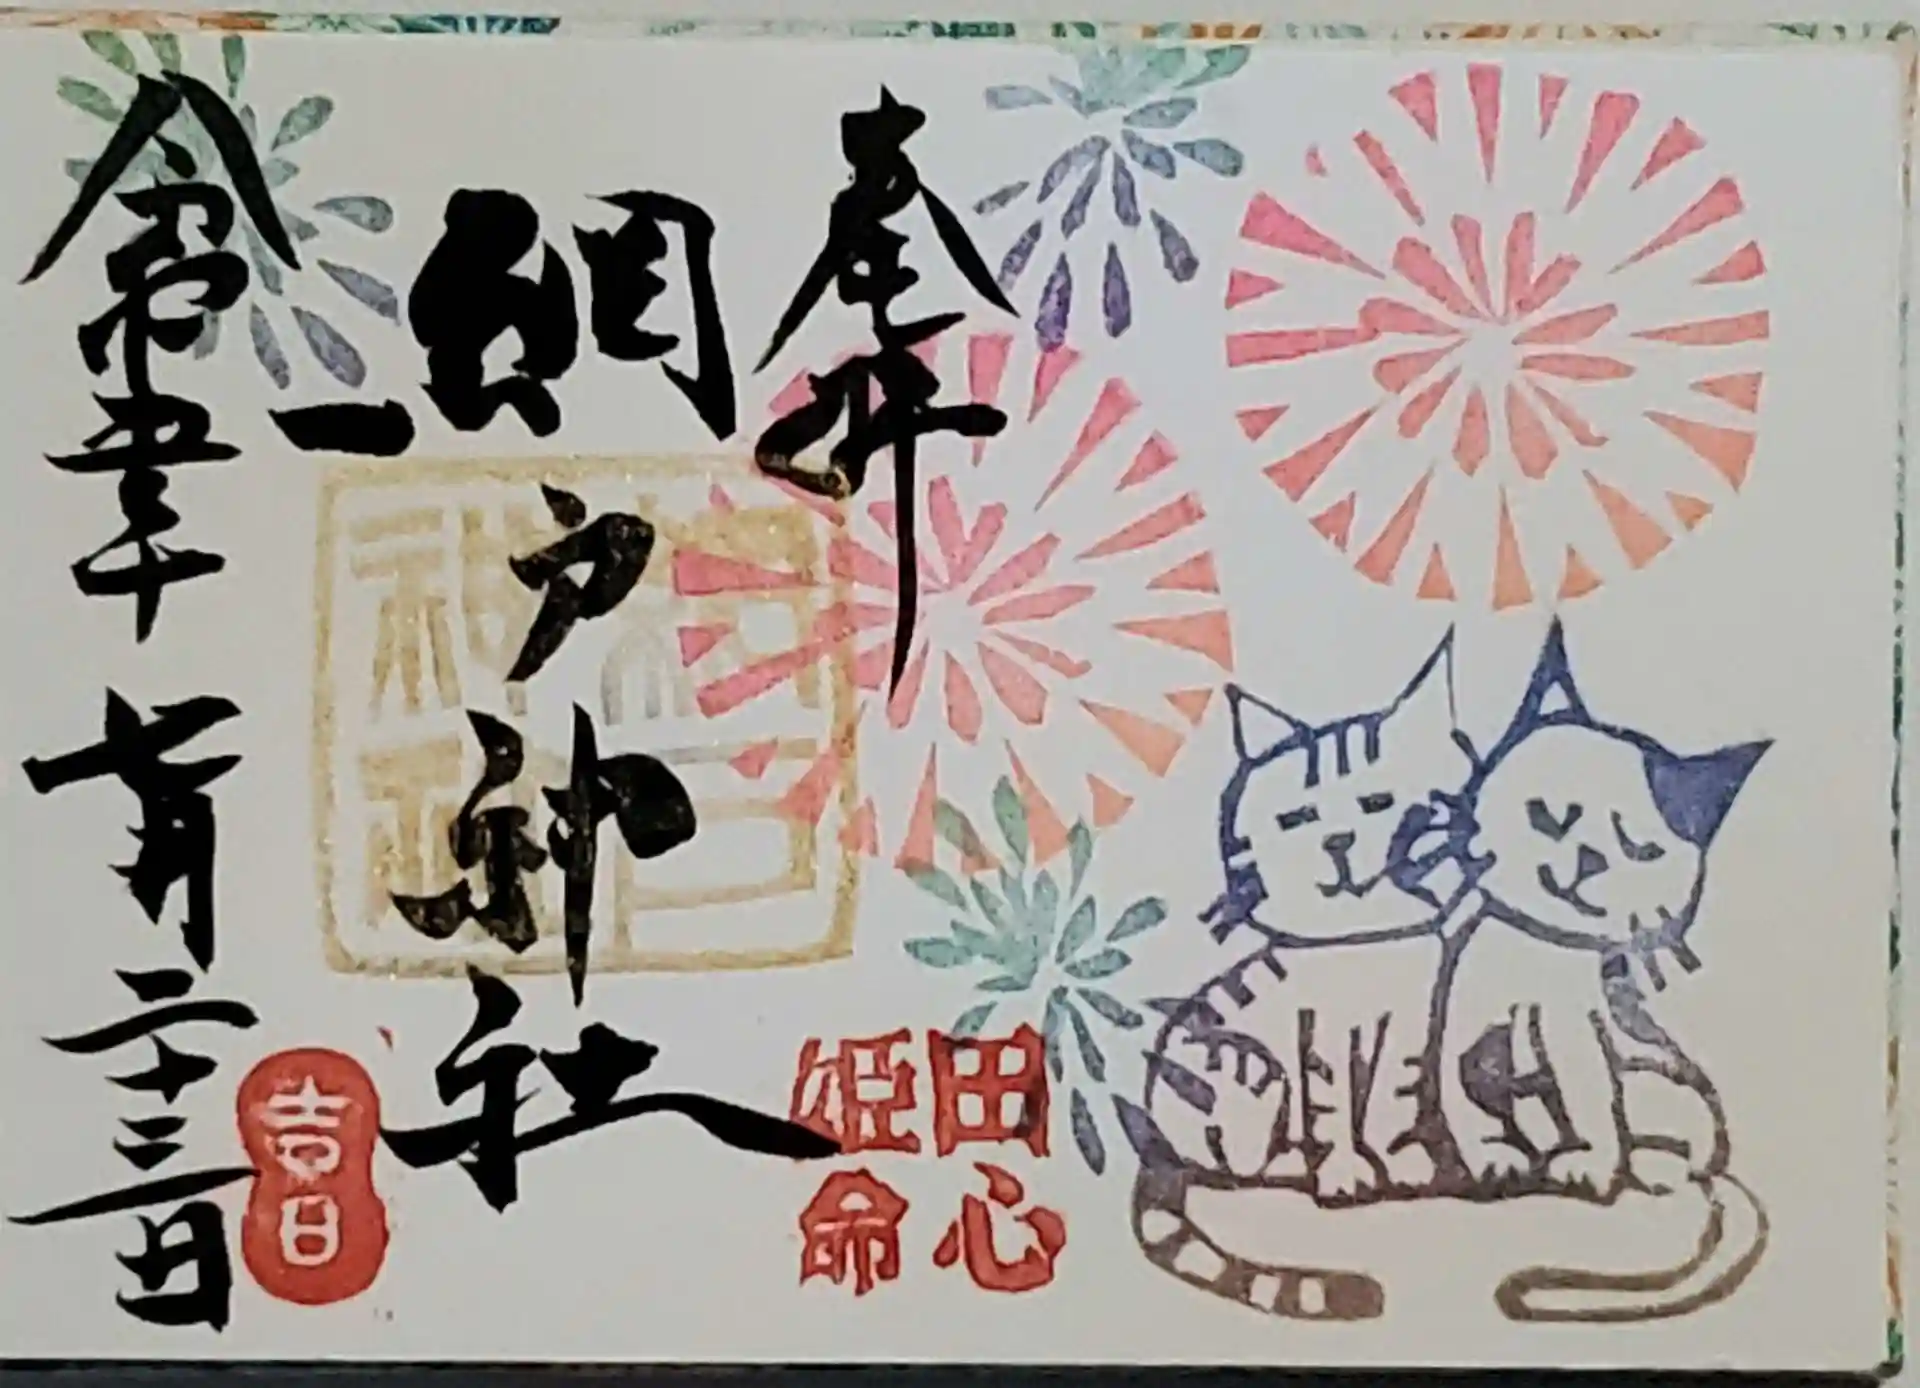 奉拝
網戸神社
令和五年 七月二十三日
田心
姫命
吉日